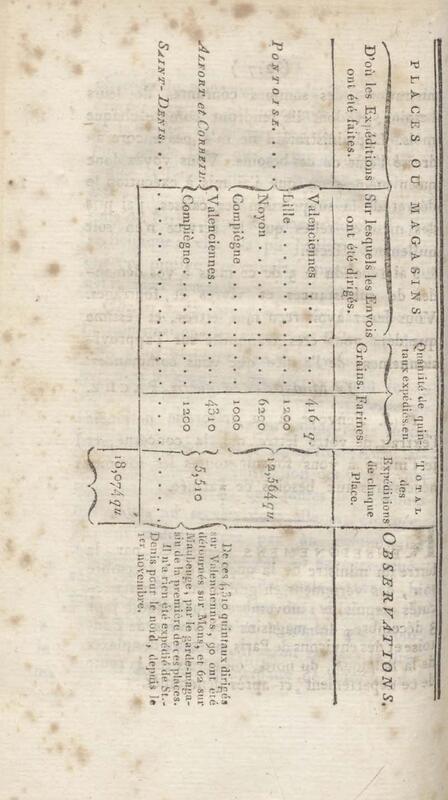 PLACES OU MAGASINS
D'où les Expéditions ont été faites.
Sur lesquels les Envois ont été dirigés.
Quantité de quintaux expédiés en
Grains. Farines.
TOTAL des Expéditions de chaque Place.
OBSERVATIONS.
PONTOISE. . . . .
Valenciennes . . . . . . . 416 q.
Lille . . . . . . . . . . 1200
Noyon . . . . . . . . . . 6200
Compiègne . . . . . . . . 1000
12,564 qu.
ALFORT et CORBEIL.
Valenciennes. . . . . . . 4310
Compiègne . . . . . . . . 1200
5,510
SAINT-DENIS. . . . . . . . . . . . . . . . .
18,074 qu.
De ces 4310 quintaux dirigés
sur Valenciennes, 90 ont été
détournés sur Mons, et 62 sur
Maubeuge, par le garde-maga-
sin de la première de ces places.
Il n'a rien été expédié de St.-
Denis pour le nord, depuis le
1er novembre.